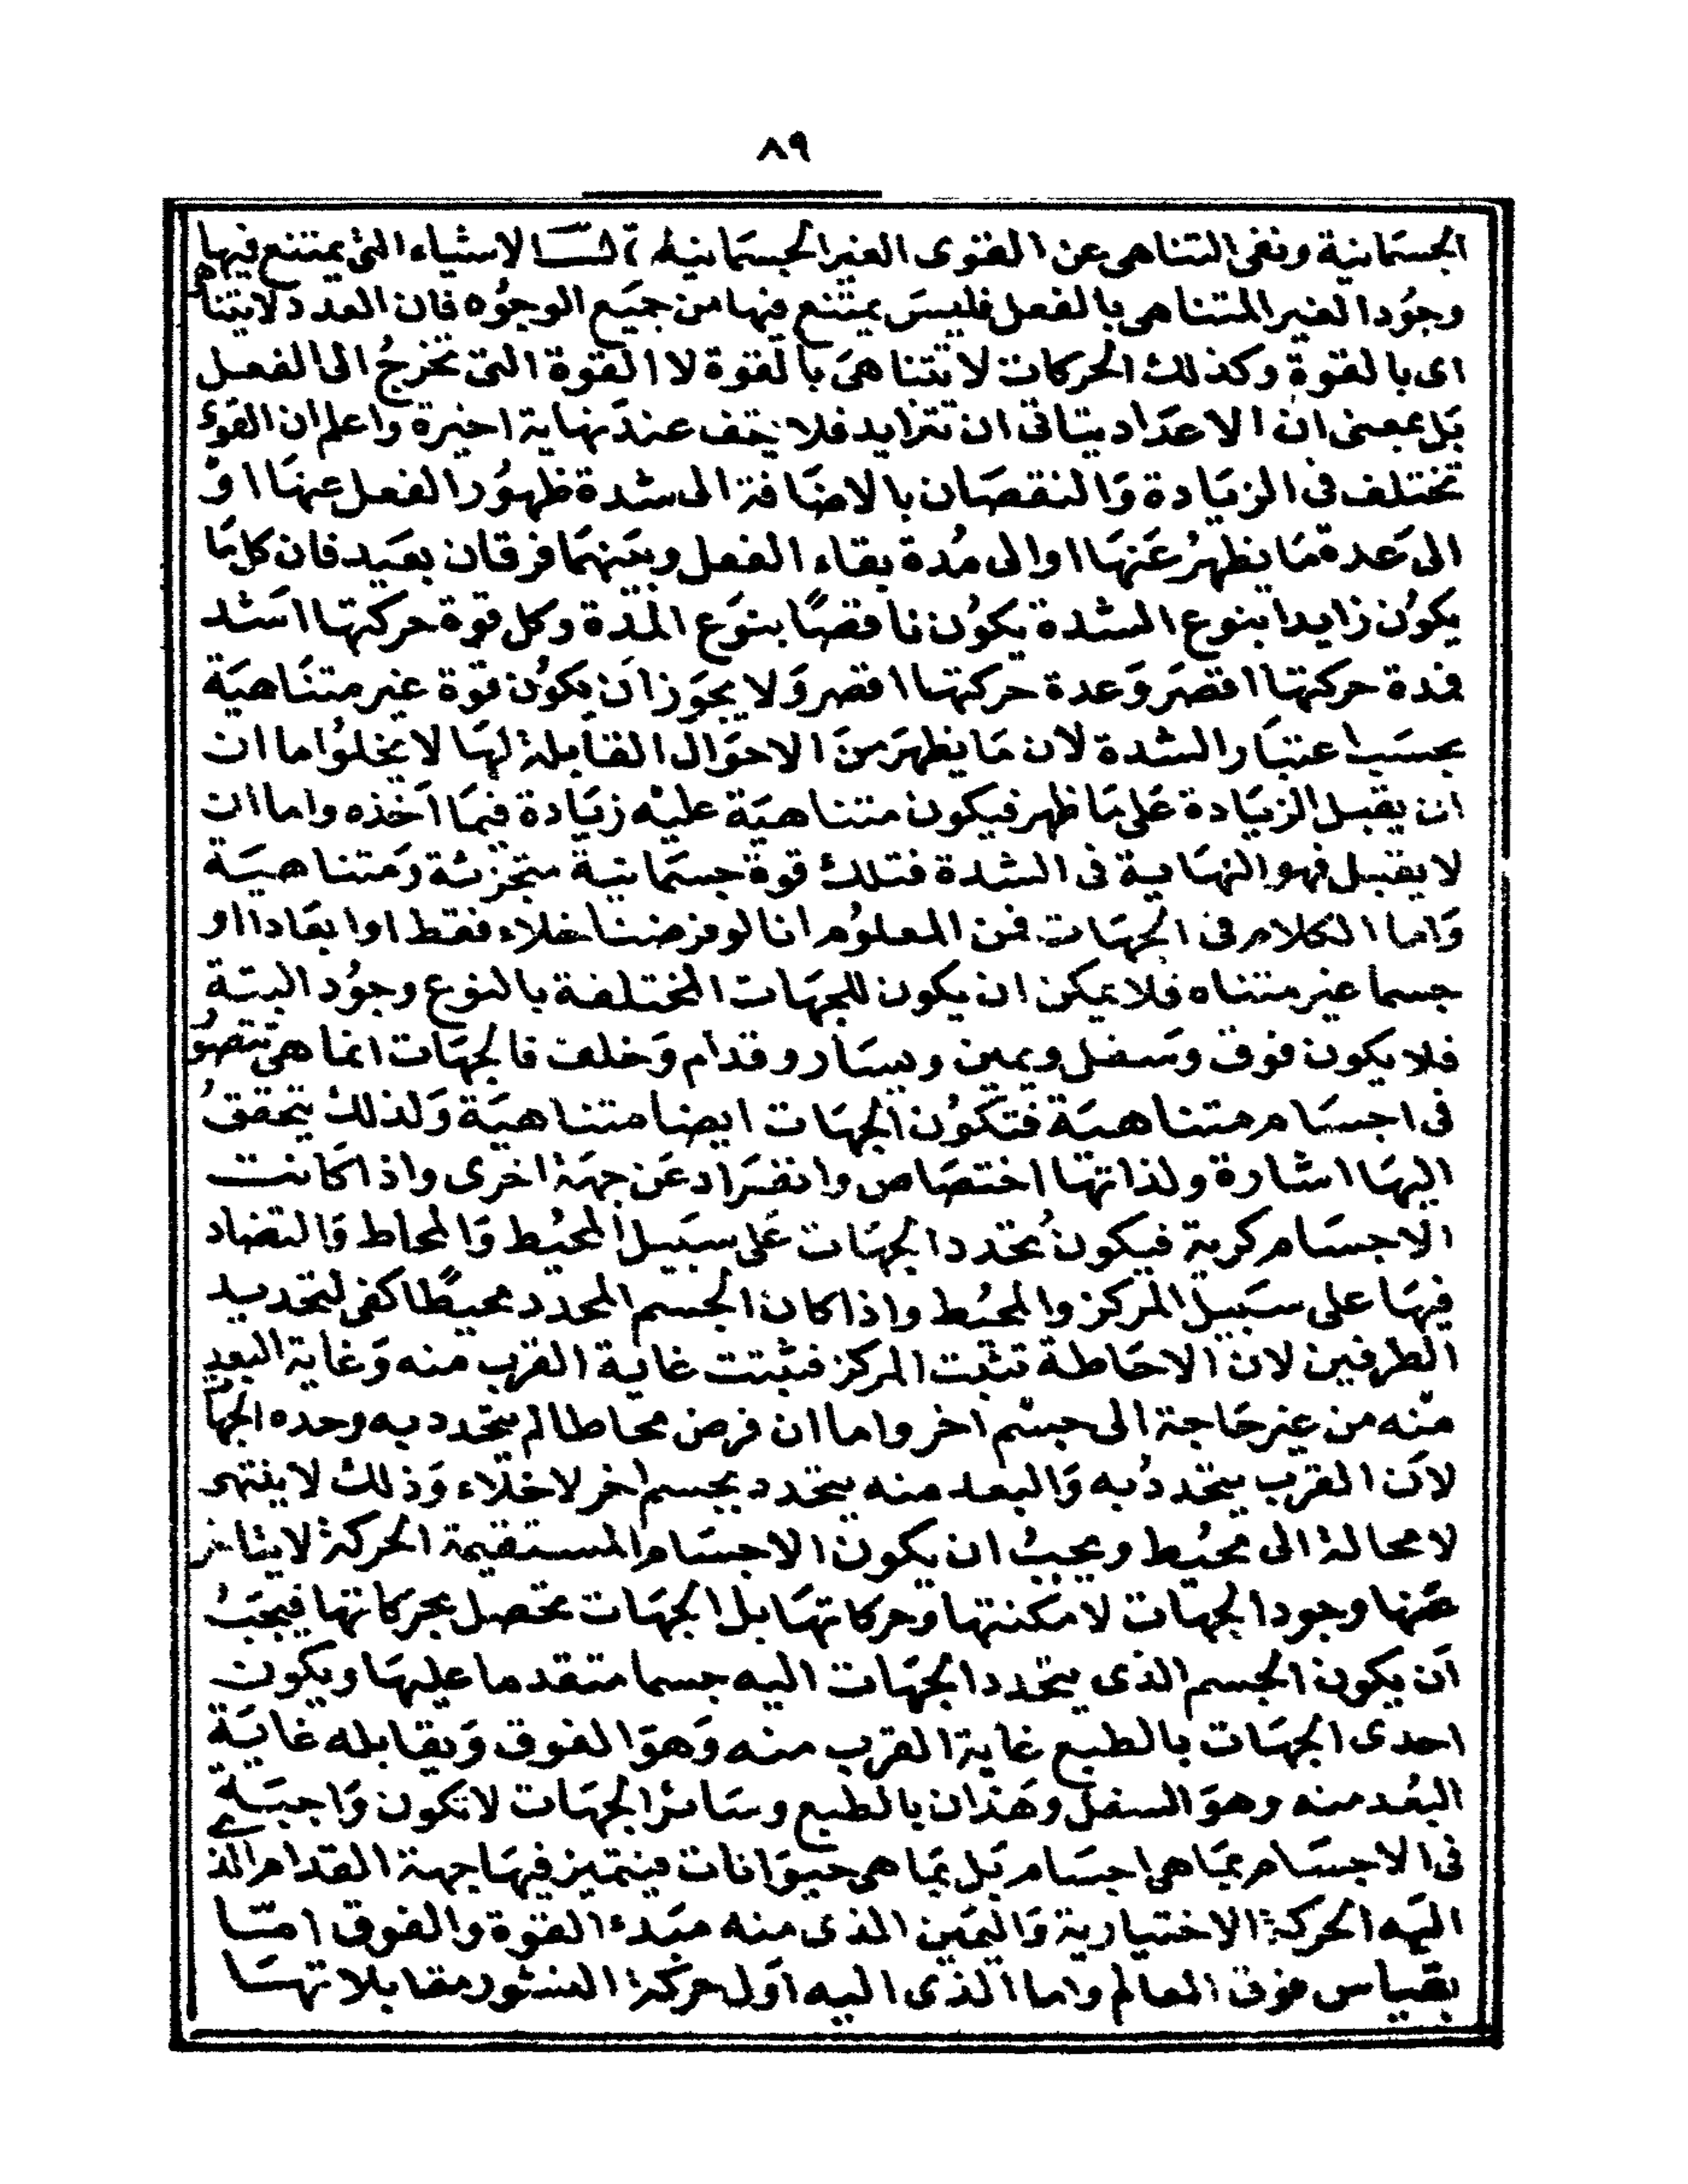 ٨٩
الجسمانية ونفى التناهى عن القوى الغير الجسمانية قال الاشياء التى يمتنع فيها
وجود الغير المتناهى بالفعل فليس يمتنع فيها من جميع الوجوه فان العدد لا يتناهى
اى بالقوة وكذلك الحركات لا تتناهى بالقوة لا القوة التى تخرج الى الفعل
بل بمعنى ان الاعداد يتاتى ان تتزايد فلا يقف عند نهاية اخيرة واعلم ان القوى
تختلف فى الزيادة والنقصان بالاضافة الى شدة ظهور الفعل عنها او
الى عدة ما يظهر عنها او الى مدة بقاء الفعل وبينهما فرقان بعيد فان كل ما
يكون زايدا بنوع الشدة يكون ناقصًا بنوع المدة وكل قوة حركتها اشد
فمدة حركتها اقصر وعدة حركتها اقصر ولا يجوز ان يكون قوة غير متناهية
بحسب اعتبار الشدة لان ما يظهر من الاحوال القابلة لها لا يخلوا اما ان
ان يقبل الزيادة على ما ظهر فيكون متناهية عليه زيادة فيما اخذه واما ان
لا يقبل فهو النهاية فى الشدة فتلك قوة جسمانية متجزئة ومتناهية
واما الكلام فى الجهات فمن المعلوم انا لو فرضنا خلاء فقط او ابعادا او
جسما غير متناه فلا يمكن ان يكون للجهات المختلفة بالنوع وجود البتة
فلا يكون فوق وسفل ويمين ويسار وقدام وخلف فالجهات انما هى تتصور
فى اجسام متناهية فتكون الجهات ايضا متناهية ولذلك يتحقق
اليها اشارة ولذاتها اختصاص وانفراد عن جهة اخرى واذا كانت
الاجسام كرية فيكون تحدد الجهات على سبيل المحيط والمحاط والتضاد
فيها على سبيل المركز والمحيط واذا كان الجسم المحدد محيطًا كفى لتحديد
الطرفين لان الاحاطة تثبت المركز فثبتت غاية القرب منه وغاية البعد
منه من غير حاجة الى جسم اخر واما ان فرض محاطا لم يتحدد به وحده الجها
لان القرب يتحدد به والبعد منه يتحدد بجسم اخر لا خلاء وذلك لا ينتهى
لا محالة الى محيط ويجب ان يكون الاجسام المستقيمة الحركة لا يتاخر
عنها وجود الجهات لامكنتها وحركاتها بل الجهات تحصل بحركاتها فيجب
ان يكون الجسم الذى يتحدد الجهات اليه جسما متقدما عليها ويكون
احدى الجهات بالطبع غاية القرب منه وهو الفوق ويقابله غاية
البعد منه وهو السفل وهذان بالطبع وسائر الجهات لا تكون واجبة
فى الاجسام بما هى اجسام بل بما هى حيوانات فيتميز فيها جهة القدام الذ
اليه الحركة الاختيارية واليمين الذى منه مبدء القوة والفوق اما
بقياس فوق العالم واما الذى اليه اول حركة النشور مقابلاتها